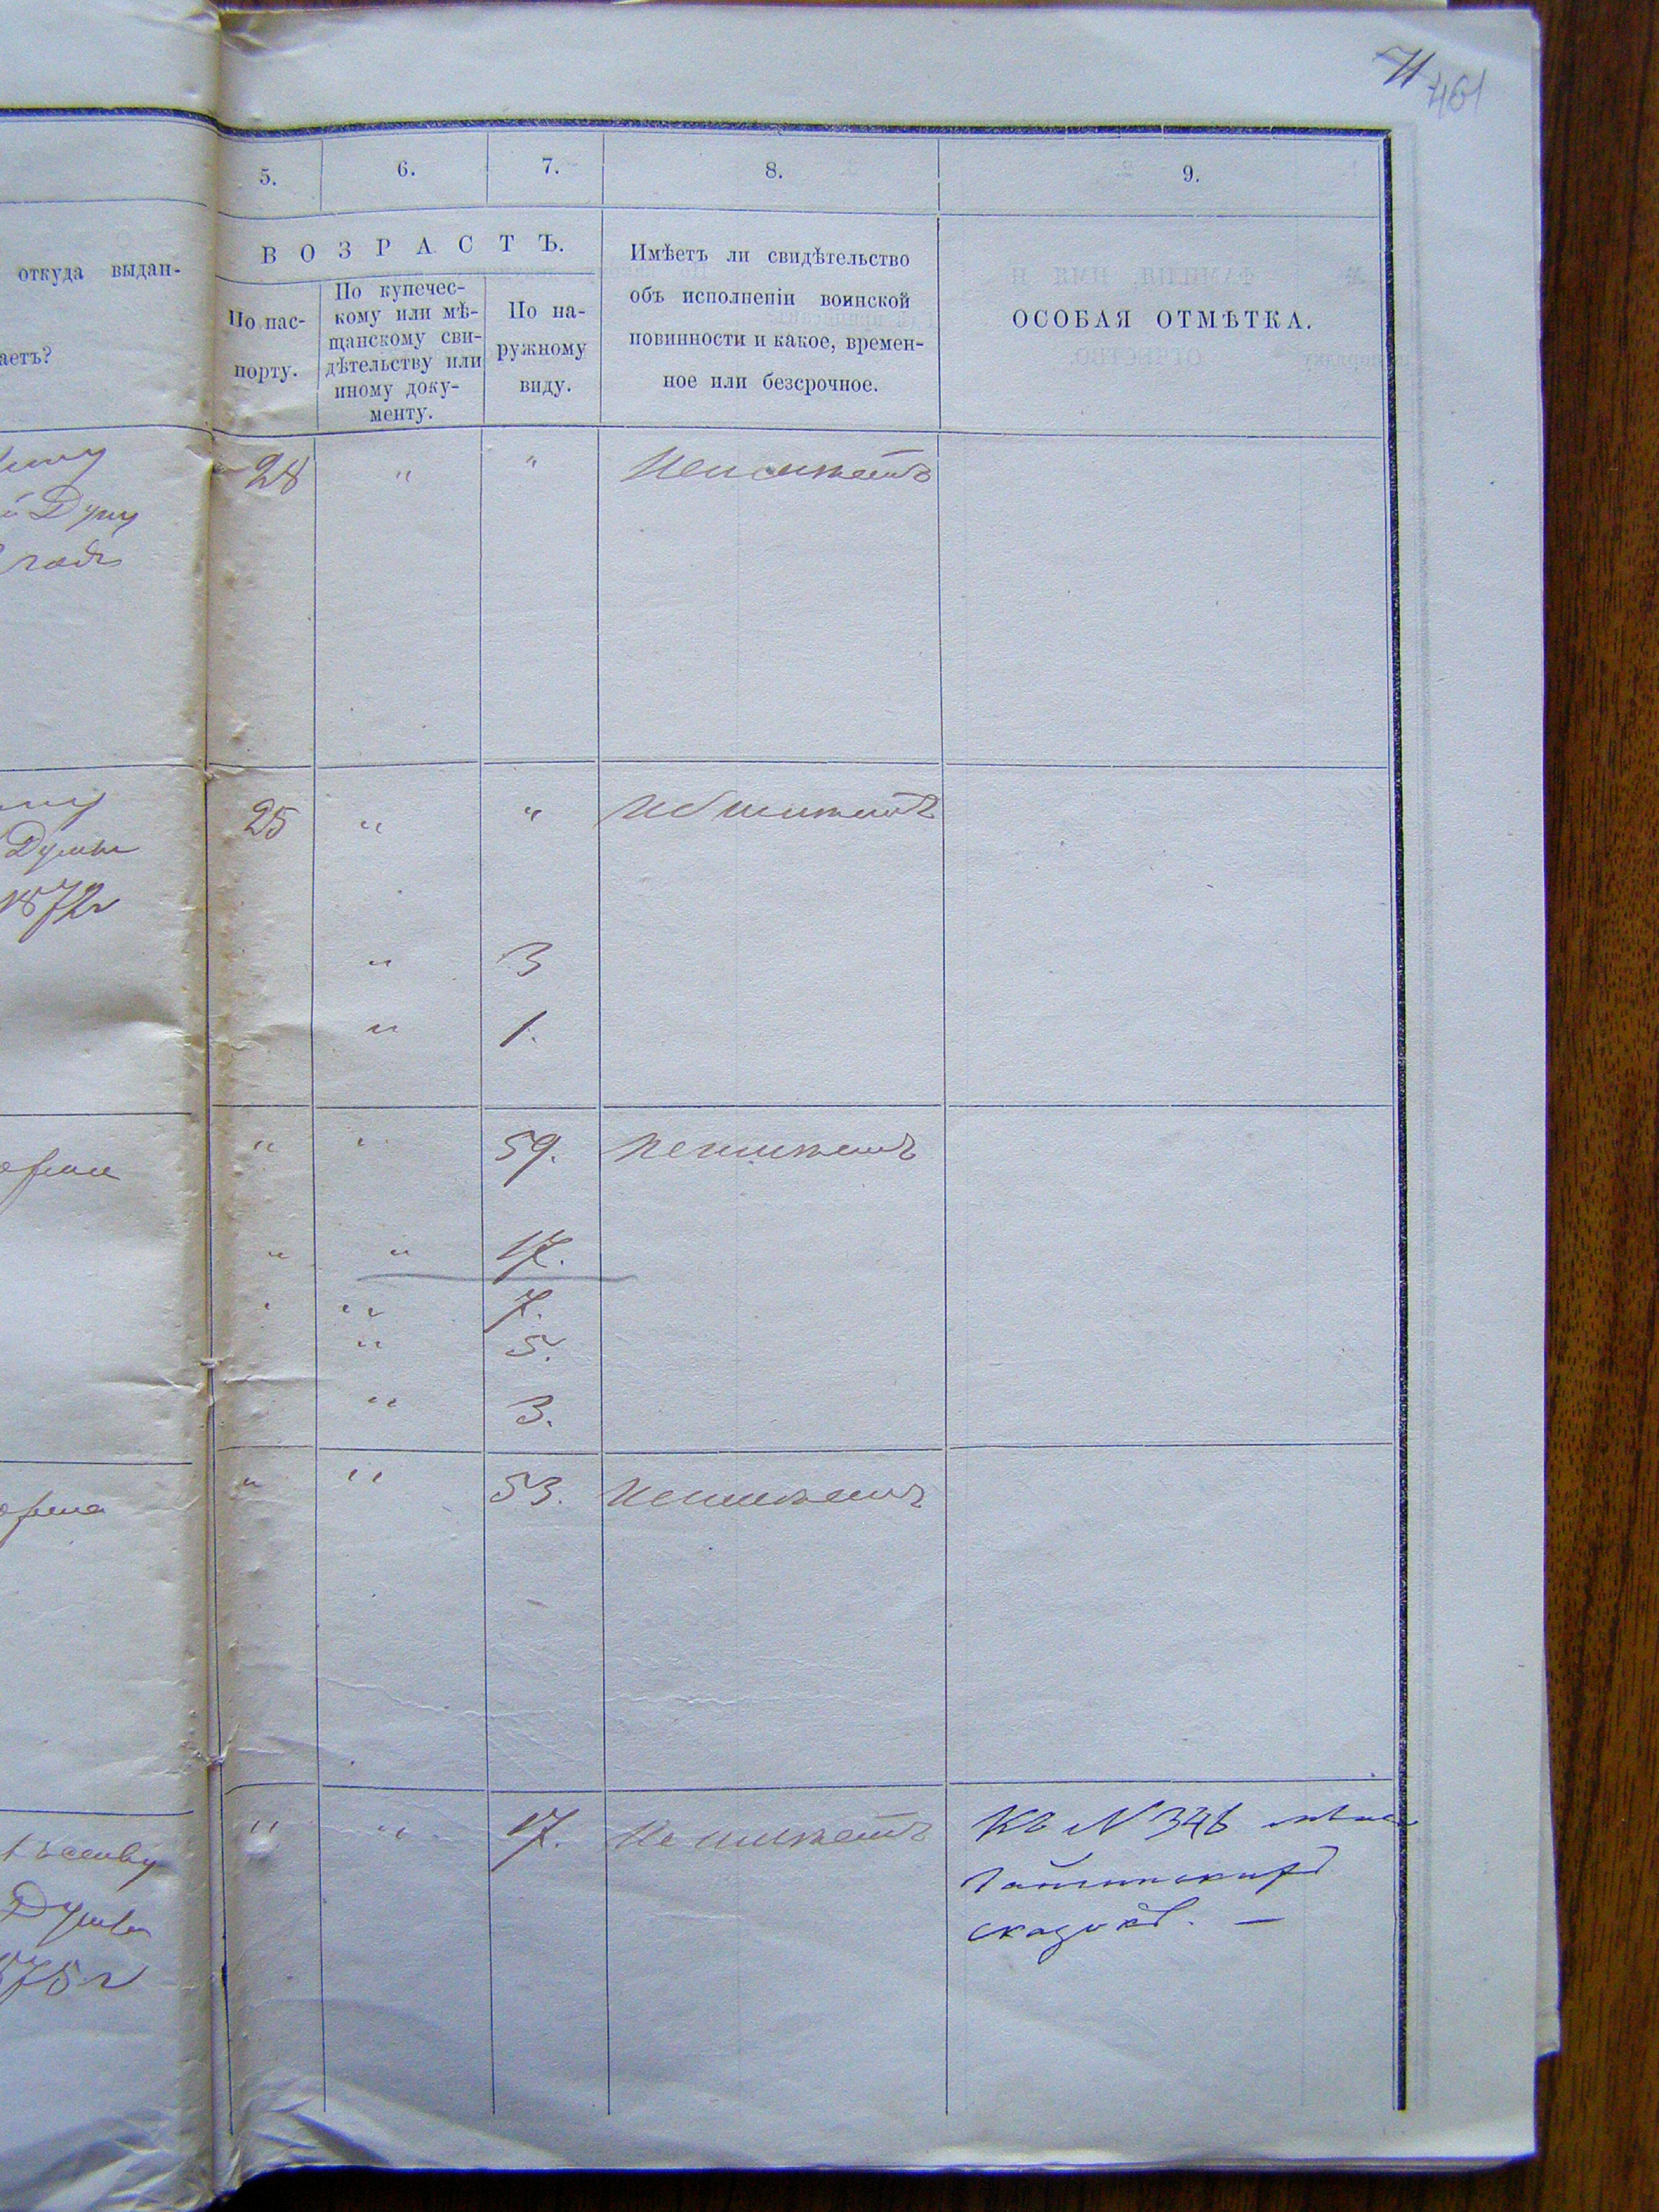 71
461
5. 6. 7. 8. 9.
откуда выдан-
аетъ?
ВОЗРАСТЪ.
По пас-
порту.
По купечес-
кому или мѣ-
щанскому сви-
дѣтельству или
иному доку-
менту.
По на-
ружному
виду.
Имѣетъ ли свидѣтельство
объ исполненіи воинской
повинности и какое, времен-
ное или безсрочное.
ОСОБАЯ ОТМѢТКА.
28 " " Неимѣетъ
Думу
годъ
25 " " Неимѣетъ
Думы
1872г
" 3
" 1.
" " 59. неимѣетъ
" " 17.
" " 7.
" 5.
" 3.
" " 53. Неимѣетъ
" " 17. Не имѣетъ Къ N 346
Думы
875 г